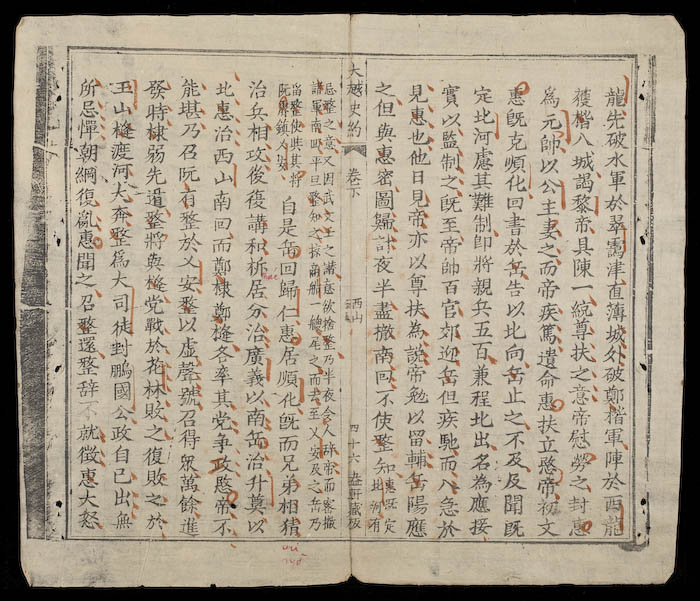 龍先破水軍於翠靄津直薄城外破鄭楷軍陣於西龍
獲楷入城謁黎帝具陳一統尊扶之意帝慰勞之封惠
為元帥以公主妻之而帝疾篤遺命惠扶立愍帝初文
惠既克順化回書於岳告以北向岳止之不及及聞既
定北河慮其難制即將親兵五百兼程北出名為應接
實以監制之既至帝帥百官郊迎岳但疾馳而入急於
見惠也他日見帝亦以尊扶為說帝勉以留輔岳陽應
之但與惠密圖歸計夜半盡撤南回不使整知
惠既定
北河有
大越史約 卷下 西山 四十六 軒藏板
忌整之意又因武文壬之譖意欲捨整乃半夜令人辞帝而密撤
諸軍南回平旦整知之掠商船一艘尾之而去至乂安及之岳乃
留整使與其將
阮鎮乂安
自是岳回歸仁惠居順化既而兄弟相猜
治兵相攻後復講和析居分治廣義以南岳治升奠以
北惠治西山南回而鄭棣鄭槰各率其党爭政愍帝不
能堪乃召阮有整於乂安整以虛聲號召得眾萬餘進
發時棣弱先遁整將與槰党戰於花林敗之復敗之於
玉山槰渡河大奔整為大司徒封鵬國公政自己出無
所忌憚朝綱復亂惠聞之召整還整辞不就徵惠大怒